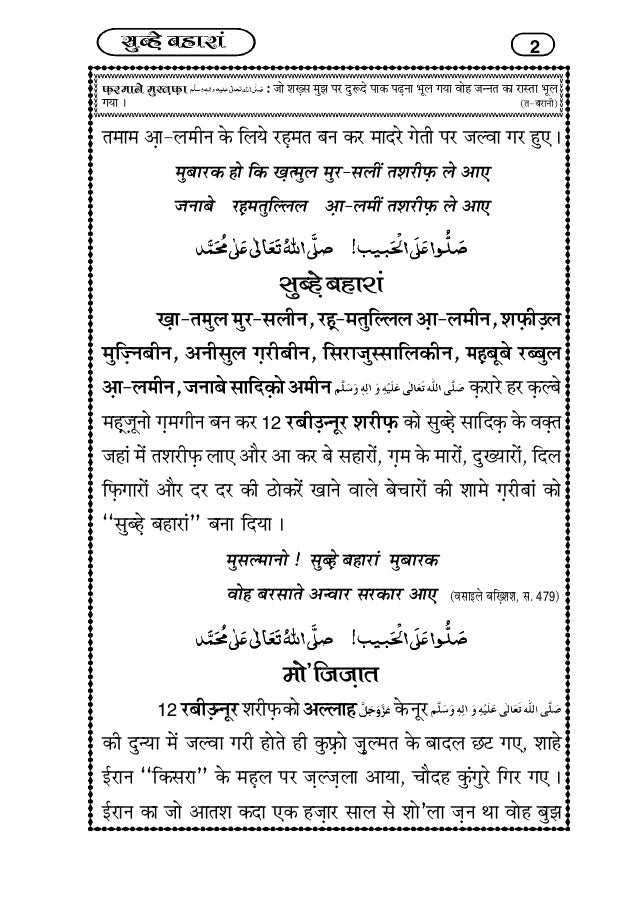 सुब्हे़ बहारां
2
फ़रमाने मुस्त़फ़ा صَلَّى اللهُ تَعَالٰى عَلَيْهِ وَاٰلِهٖ وَسَلَّم : जो शख़्स मुझ पर दुरूदे पाक पढ़ना भूल गया वोह जन्नत का रास्ता भूल
गया । (त-बरानी)
तमाम आ़-लमीन के लिये रह़मत बन कर मादरे गेती पर जल्वा गर हुए ।
मुबारक हो कि ख़त्मुल मुर-सलीं तशरीफ़ ले आए
जनाबे रह़मतुल्लिल आ़-लमीं तशरीफ़ ले आए
صَلُّوْا عَلَى الْحَبِيْب! صَلَّى اللهُ تَعَالٰى عَلٰى مُحَمَّد
सुब्हे़ बहारां
ख़ा-तमुल मुर-सलीन, रह़्-मतुल्लिल आ़-लमीन, शफ़ीउ़ल
मुज़्निबीन, अनीसुल ग़रीबीन, सिराजुस्सालिकीन, मह़बूबे रब्बुल
आ़-लमीन, जनाबे सादिक़ो अमीन صَلَّى اللهُ تَعَالٰى عَلَيْهِ وَاٰلِهٖ وَسَلَّم क़रारे हर क़ल्बे
मह़्ज़ूनो ग़मगीन बन कर 12 रबीउ़न्नूर शरीफ़ को सुब्हे़ सादिक़ के वक़्त
जहां में तशरीफ़ लाए और आ कर बे सहारों, ग़म के मारों, दुख्यारों, दिल
फ़िगारों और दर दर की ठोकरें खाने वाले बेचारों की शामे ग़रीबां को
‘‘सुब्हे़ बहारां’’ बना दिया ।
मुसल्मानो ! सुब्हे़ बहारां मुबारक
वोह बरसाते अन्वार सरकार आए (वसाइले बख़्शिश, स. 479)
صَلُّوْا عَلَى الْحَبِيْب! صَلَّى اللهُ تَعَالٰى عَلٰى مُحَمَّد
मो’जिज़ात
12 रबीउ़न्नूर शरीफ़ को अल्लाह عَزَّوَجَلَّ के नूर صَلَّى اللهُ تَعَالٰى عَلَيْهِ وَاٰلِهٖ وَسَلَّم
की दुन्या में जल्वा गरी होते ही कुफ़्रो ज़ुल्मत के बादल छट गए, शाहे
ईरान ‘‘किसरा’’ के मह़ल पर ज़ल्ज़ला आया, चौदह कुंगुरे गिर गए ।
ईरान का जो आतश कदा एक हज़ार साल से शो’ला ज़न था वोह बुझ